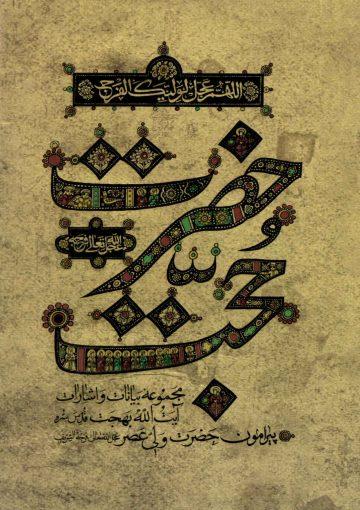 اللهم عجل لولیک الفرج
حضرت
حجت
مجموعه بیانات و اشارات
آیت الله بهجت قدس سره
پیرامون حضرت ولی عصر عجل الله تعالی فرجه الشریف